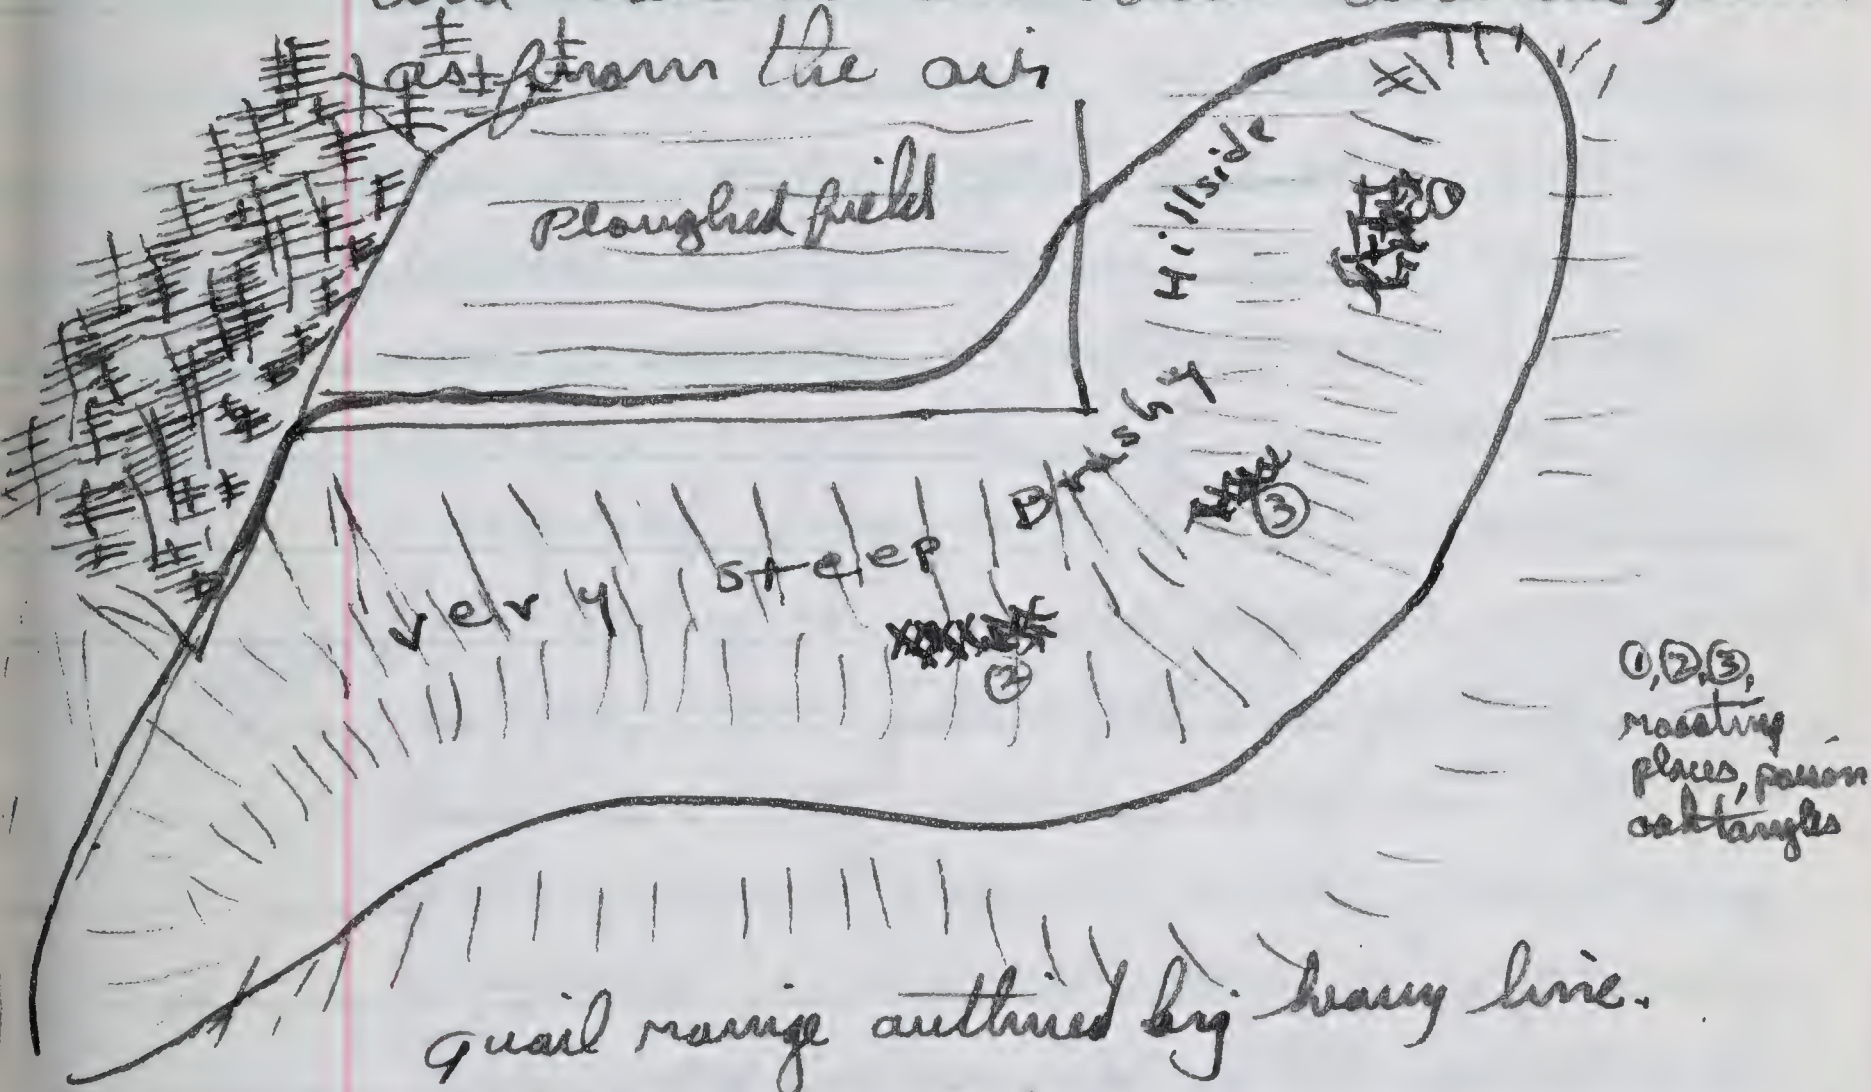 as from the air
Ploughed field
Brushy Hillside
①
③
very steep
②
①,②,③,
roosting
places, poison
oak tangles
quail range outlined by heavy line.